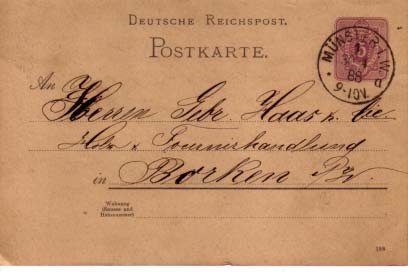 DEUTSCHE REICHSPOST.
POSTKARTE.
MÜNSTER I. W.
1
88
9-10V.
An
Herren Gebr. Haas & Cie
Holz & Fournierhandlung
in Borken
Wohnung
(Strasse und
Hausnummer)
188